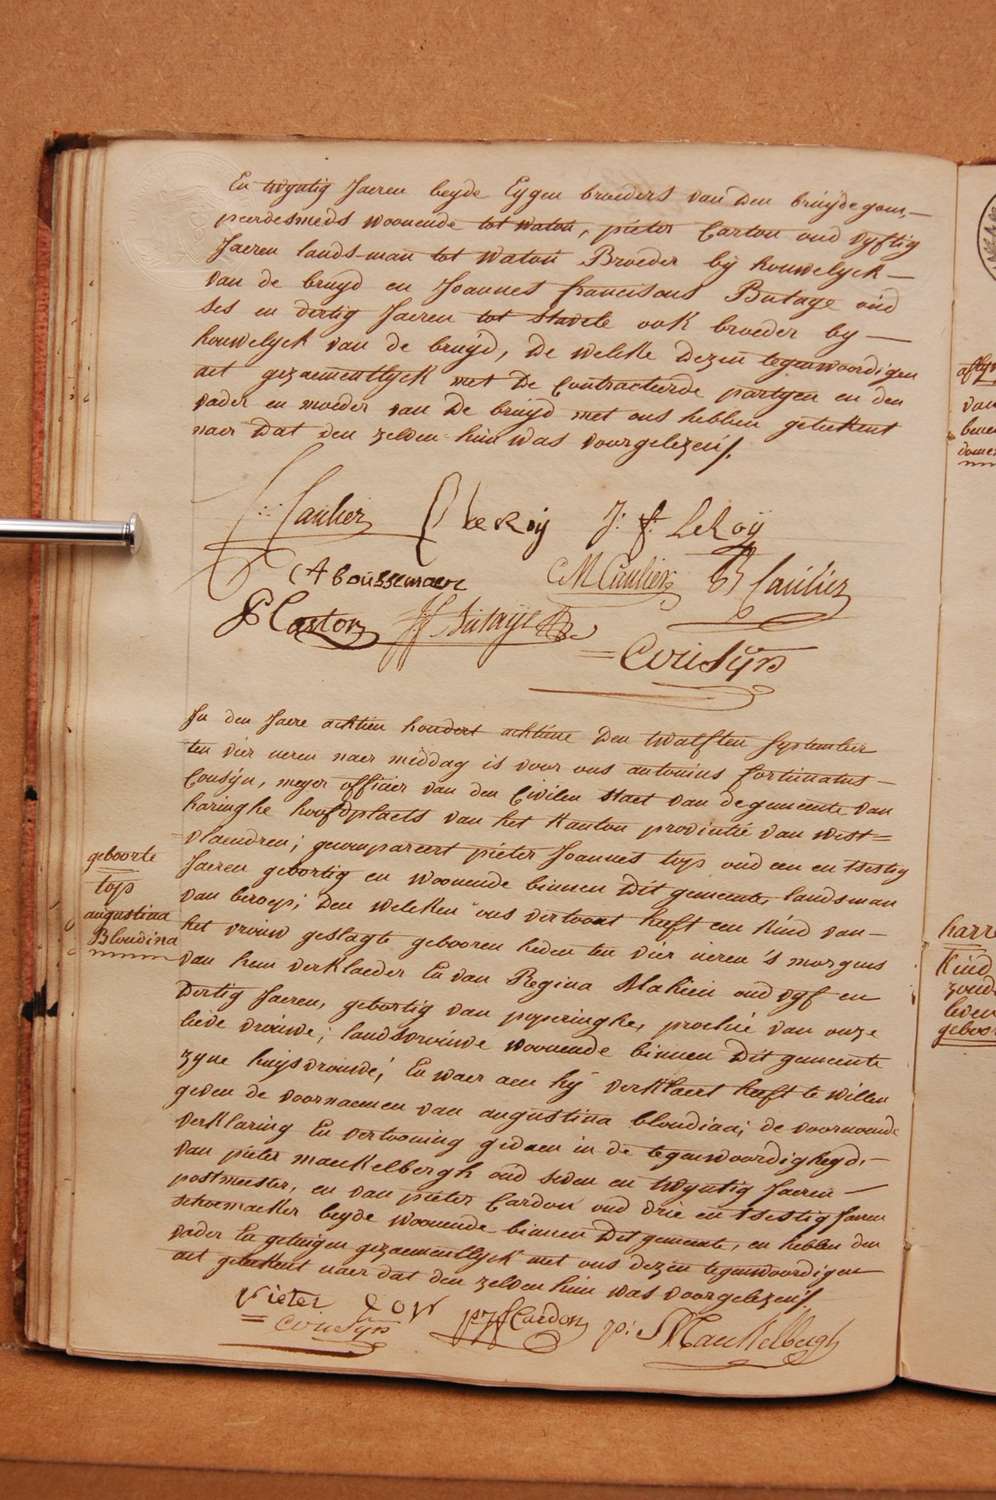 En twÿntig Jaeren beÿde Eÿgen broeders van den bruÿdegom,—
peerdesmeds woonende tot watou, pieter Carton oud vÿftig
Jaeren lands-man tot watou Broeder bÿ houwelÿck—
van de bruÿd en Joannes franciscus Butaÿe oud
ses en dertig Jaeren tot stavele ook broeder bÿ—
houwelÿck van de bruÿd, de welke dezen tegenwoordigen
act gezaementlÿck met de Contracteerde partÿen en den
vader en moeder van de bruÿd met ons hebben geteekent
naer dat den zelven hun was voorgelezen/.
Caulier LeRoÿ J: f: LeRoÿ
CABoussemaere CMCaulier B Caulier
P Carton JF Butaÿe
= Cousÿn
In den Jaere achtien hondert achtiene den twalfsten September
ten vier ueren naer middag is voor ons antonius fortunatus—
Cousÿn, meÿer officier van den Civilen staet van de gemeente van
haringhe hoofdplaets van het kanton provintie van west=
vlaendren; gecompareert pieter Joannes top oud een en tsestig
Jaeren geboortig en woonende binnen dit gemeente, landsman
van beroep; den welcken ons vertoont heeft een kind van—
het vrouw geslagte gebooren heden ten vier ueren 's morgens
van hem verklaeder En van Regina Mahieu oud vÿf en
dertig Jaeren, geboortig van poperinghe, prochie van onze
lieve vrouwe; landsvrouwe woonende binnen dit gemeente
zÿne huÿsvrouwe; En waer aen hÿ verklaert heeft te willen
geven de voornaemen van augustina blondina; de voornoemde
verklaring En vertooning gedaen in de tegenwoordigheÿd,—
van pieter maeckelbergh oud seven en twÿntig Jaeren—
postmeester, en van pieter Cardon oud drie en tsestig Jaeren
schoemaeker beÿde woonende binnen dit gemeente, en hebben den
vader En getuigen gezaementlÿck met ons dezen tegenwoordigen
act geteekent naer dat den zelven hun was voorgelezen/.
pieter top pr J Cardon p: J Maeckelbergh
= Cousÿn
geboorte
top
augustina
Blondina
van
harre
Kind
zonde
leven
geboor